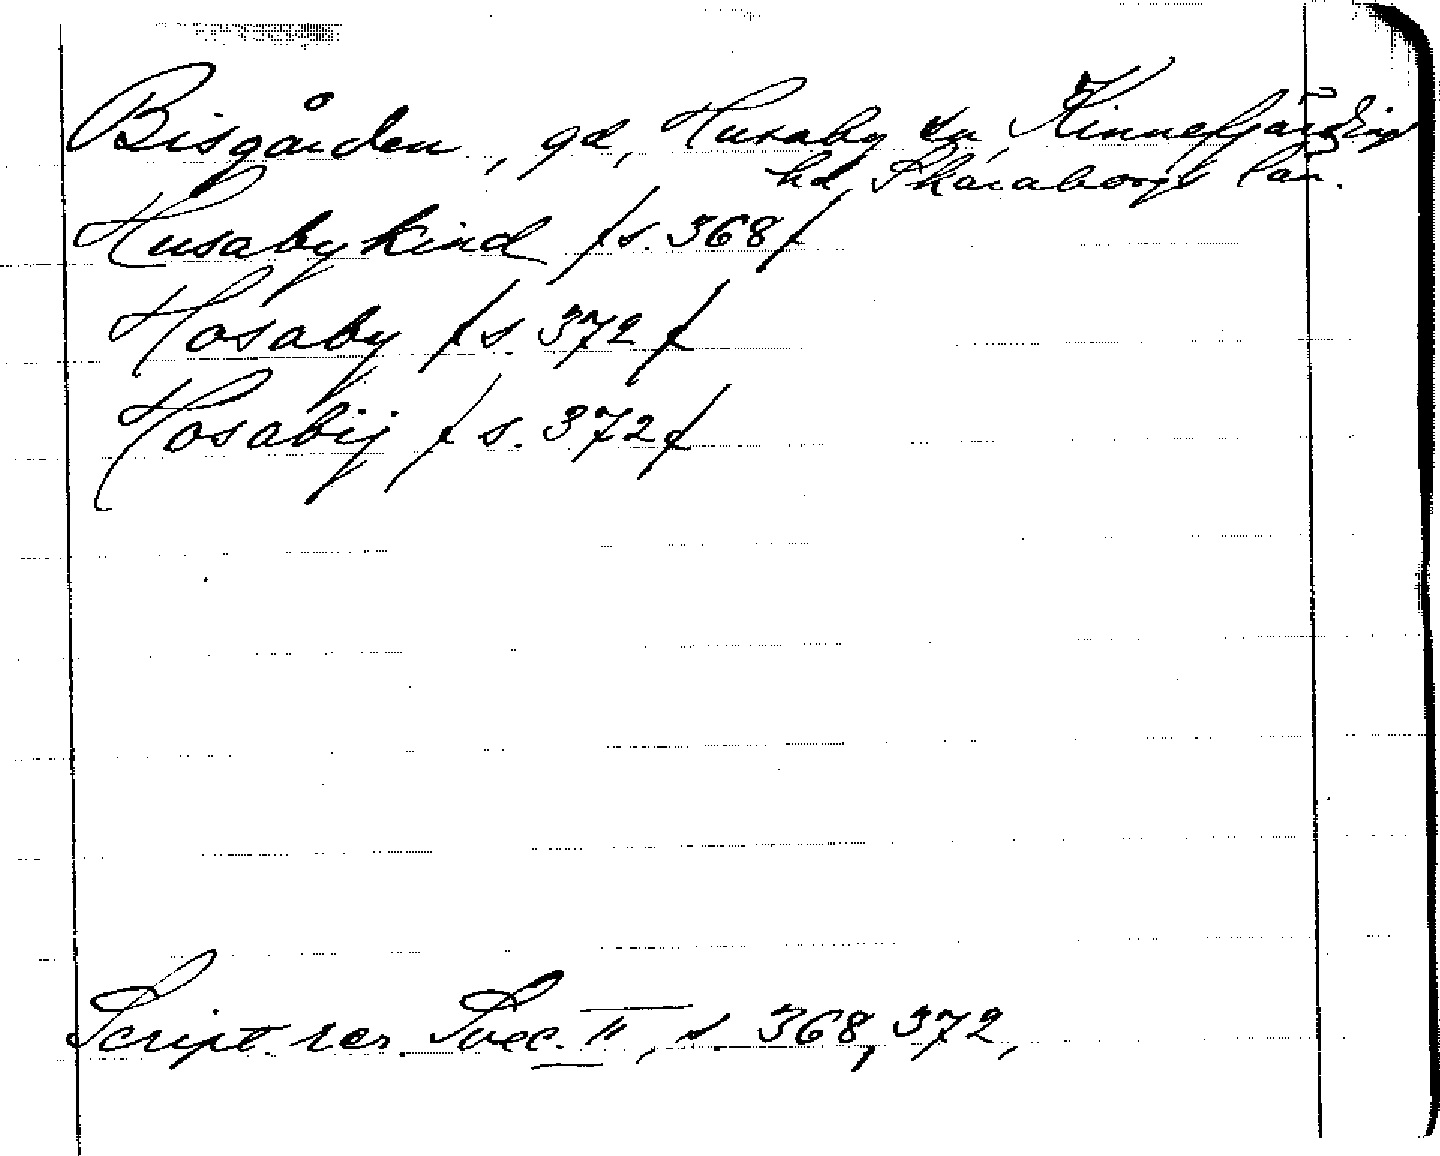 Bisgården, gd, Husaby sn, Kinnefjärding
hd, Skaraborgs län.
Husabykind /s. 368/
Hosaby /s. 372/
Hosabÿ /s. 372/
Script. rer. Svec. II, s. 368, 372,